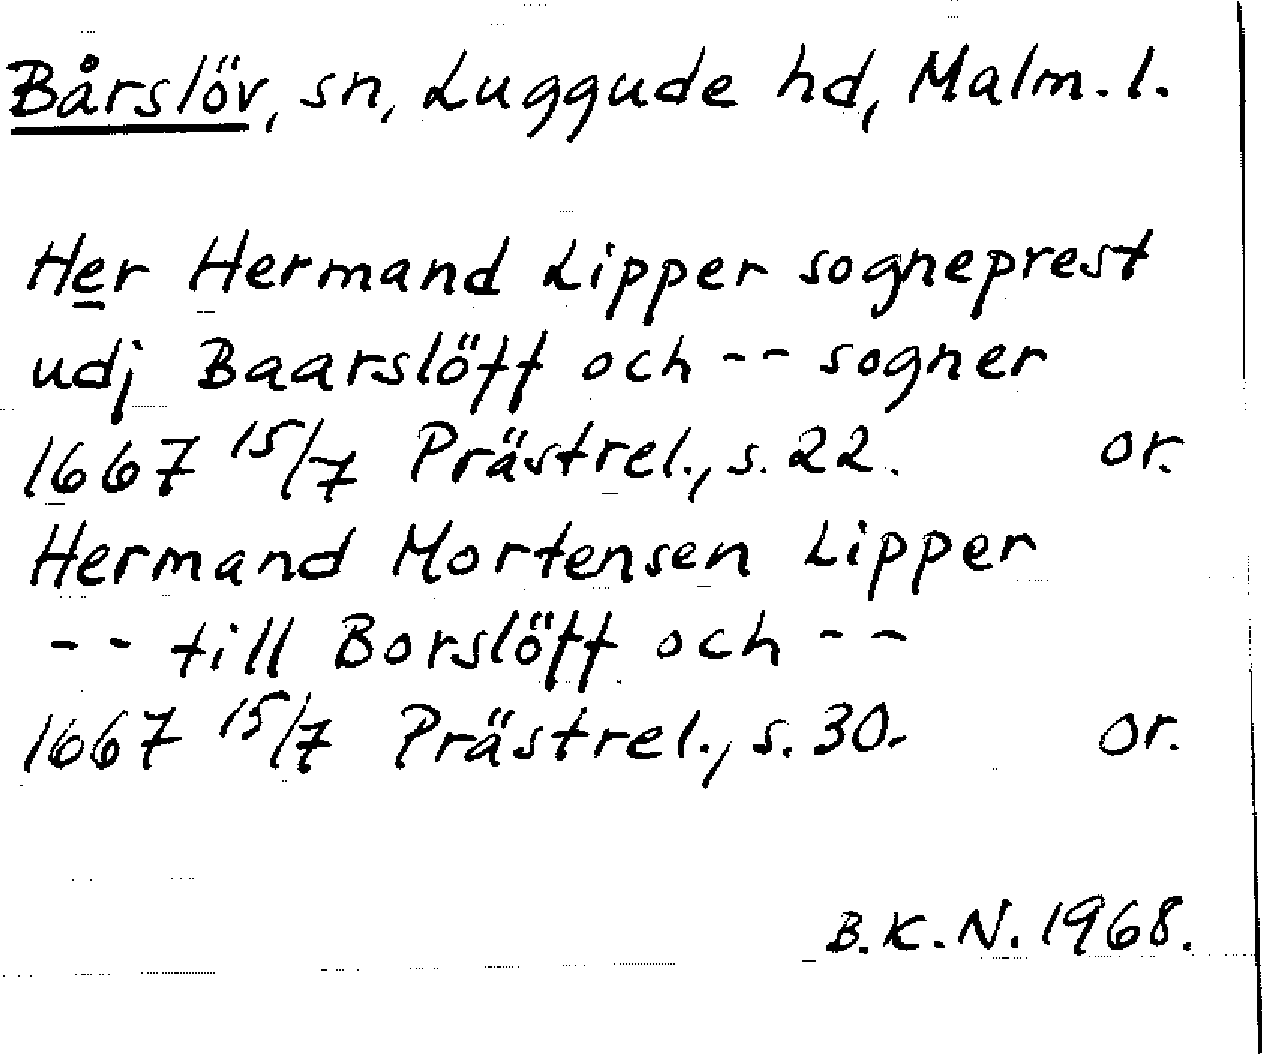 Bårslöv, sn, Luggude hd, Malm. l.
Her Hermand Lipper sogneprest
udj Baarslöff och -- sogner
1667 15/7 Prästrel., s. 22. or.
Hermand Mortensen Lipper
-- till Borslöff och --
1667 15/7 Prästrel., s. 30. or.
B. K. N. 1968.